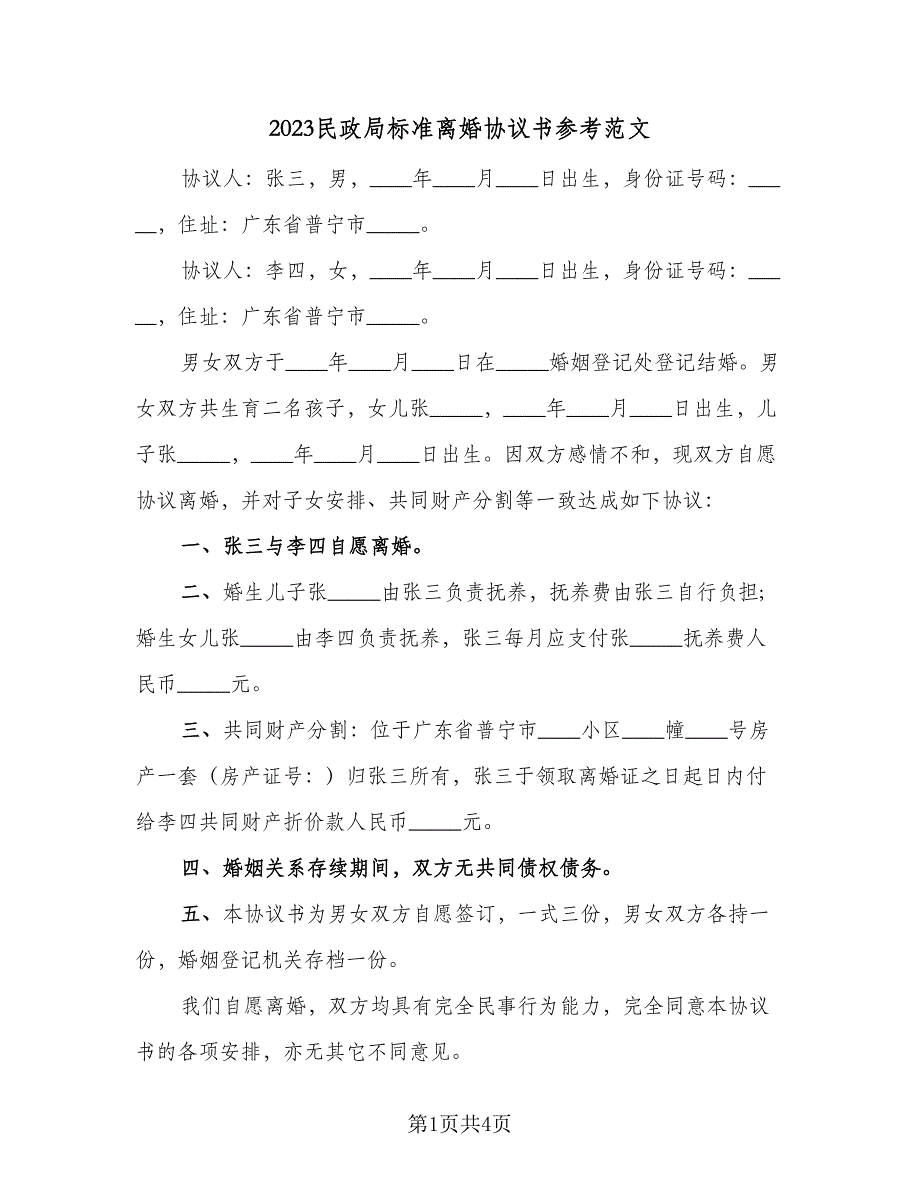 2023民政局标准离婚协议书参考范文
协议人：张三，男，____年____月____日出生，身份证号码：___
__，住址：广东省普宁市_____。
协议人：李四，女，____年____月____日出生，身份证号码：___
__，住址：广东省普宁市_____。
男女双方于____年____月____日在_____婚姻登记处登记结婚。男
女双方共生育二名孩子，女儿张_____，____年____月____日出生，儿
子张_____，____年____月____日出生。因双方感情不和，现双方自愿
协议离婚，并对子女安排、共同财产分割等一致达成如下协议：
一、张三与李四自愿离婚。
二、婚生儿子张_____由张三负责抚养，抚养费由张三自行负担；
婚生女儿张_____由李四负责抚养，张三每月应支付张_____抚养费人
民币_____元。
三、共同财产分割：位于广东省普宁市____小区____幢____号房
产一套（房产证号：）归张三所有，张三于领取离婚证之日起日内付
给李四共同财产折价款人民币_____元。
四、婚姻关系存续期间，双方无共同债权债务。
五、本协议书为男女双方自愿签订，一式三份，男女双方各持一
份，婚姻登记机关存档一份。
我们自愿离婚，双方均具有完全民事行为能力，完全同意本协议
书的各项安排，亦无其它不同意见。
第1页共4页